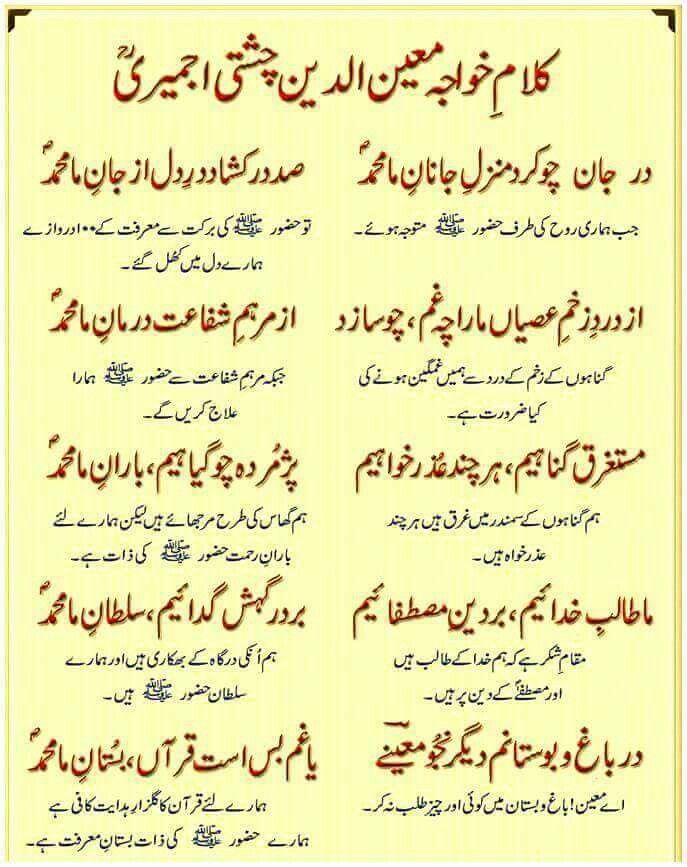 کلامِ خواجہ معین الدین چشتی اجمیریؒ
در جان چو کرد منزلِ جانانِ ما محمدؐ صد در کشاد در دل از جانِ ما محمدؐ
جب ہماری روح کی طرف حضور ﷺ متوجہ ہوئے۔ تو حضور ﷺ کی برکت سے معرفت کے ۱۰۰ دروازے
ہمارے دل میں کھُل گئے۔
از دردِ زخمِ عصیاں مارا چہ غم، چو سازد از مرہمِ شفاعت درمانِ ما محمدؐ
گناہوں کے زخم کے درد سے ہمیں غمگین ہونے کی جبکہ مرہمِ شفاعت سے حضور ﷺ ہمارا
کیا ضرورت ہے۔ علاج کریں گے۔
مستغرقِ گناہیم، ہر چند عُذر خواہیم پژمُردہ چو گیاہیم، بارانِ ما محمدؐ
ہم گناہوں کے سمندر میں غرق ہیں ہر چند ہم گھاس کی طرح مرجھائے ہیں لیکن ہمارے لئے
عذر خواہ ہیں۔ بارانِ رحمت حضور ﷺ کی ذات ہے۔
ما طالبِ خدائیم، بر دینِ مصطفائیم بر درگہش گدائیم، سلطانِ ما محمدؐ
مقامِ شکر ہے کہ ہم خدا کے طالب ہیں ہم اُنکی درگاہ کے بھکاری ہیں اور ہمارے
اور مصطفیٰؐ کے دین پر ہیں۔ سلطان حضور ﷺ ہیں۔
در باغ و بوستانم دیگر نجُو معینے یاغم بس است قرآں، بُستانِ ما محمدؐ
اے معین! باغ و بستان میں کوئی اور چیز طلب نہ کر۔ ہمارے لئے قرآن کا گلزارِ ہدایت کافی ہے
ہمارے حضور ﷺ کی ذات بستانِ معرفت ہے۔